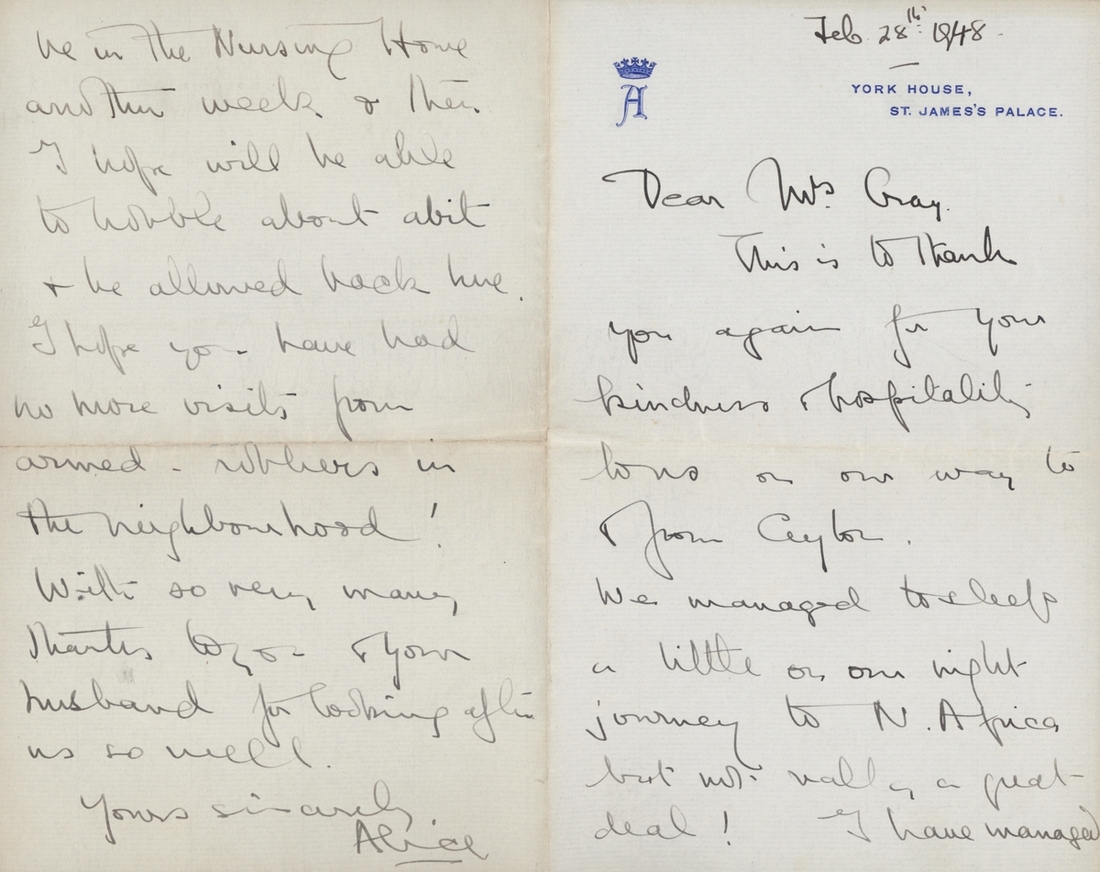 Feb. 28th: 1948.
A
YORK HOUSE,
ST. JAMES'S PALACE.
Dear Mrs. Gray.
This is to thank
you again for your
kindness & hospitality
to us on our way to
& from Ceylon.
We managed to sleep
a little on our night
journey to N. Africa
but not really a great
deal! I have managed
be in the Nursing Home
another week & then
I hope will be able
to hobble about abit
& be allowed back here.
I hope you have had
no more visits from
armed - robbers in
the neighbourhood!
With so very many
thanks to you & your
husband for looking after
us so well.
Yours sincerely
Alice